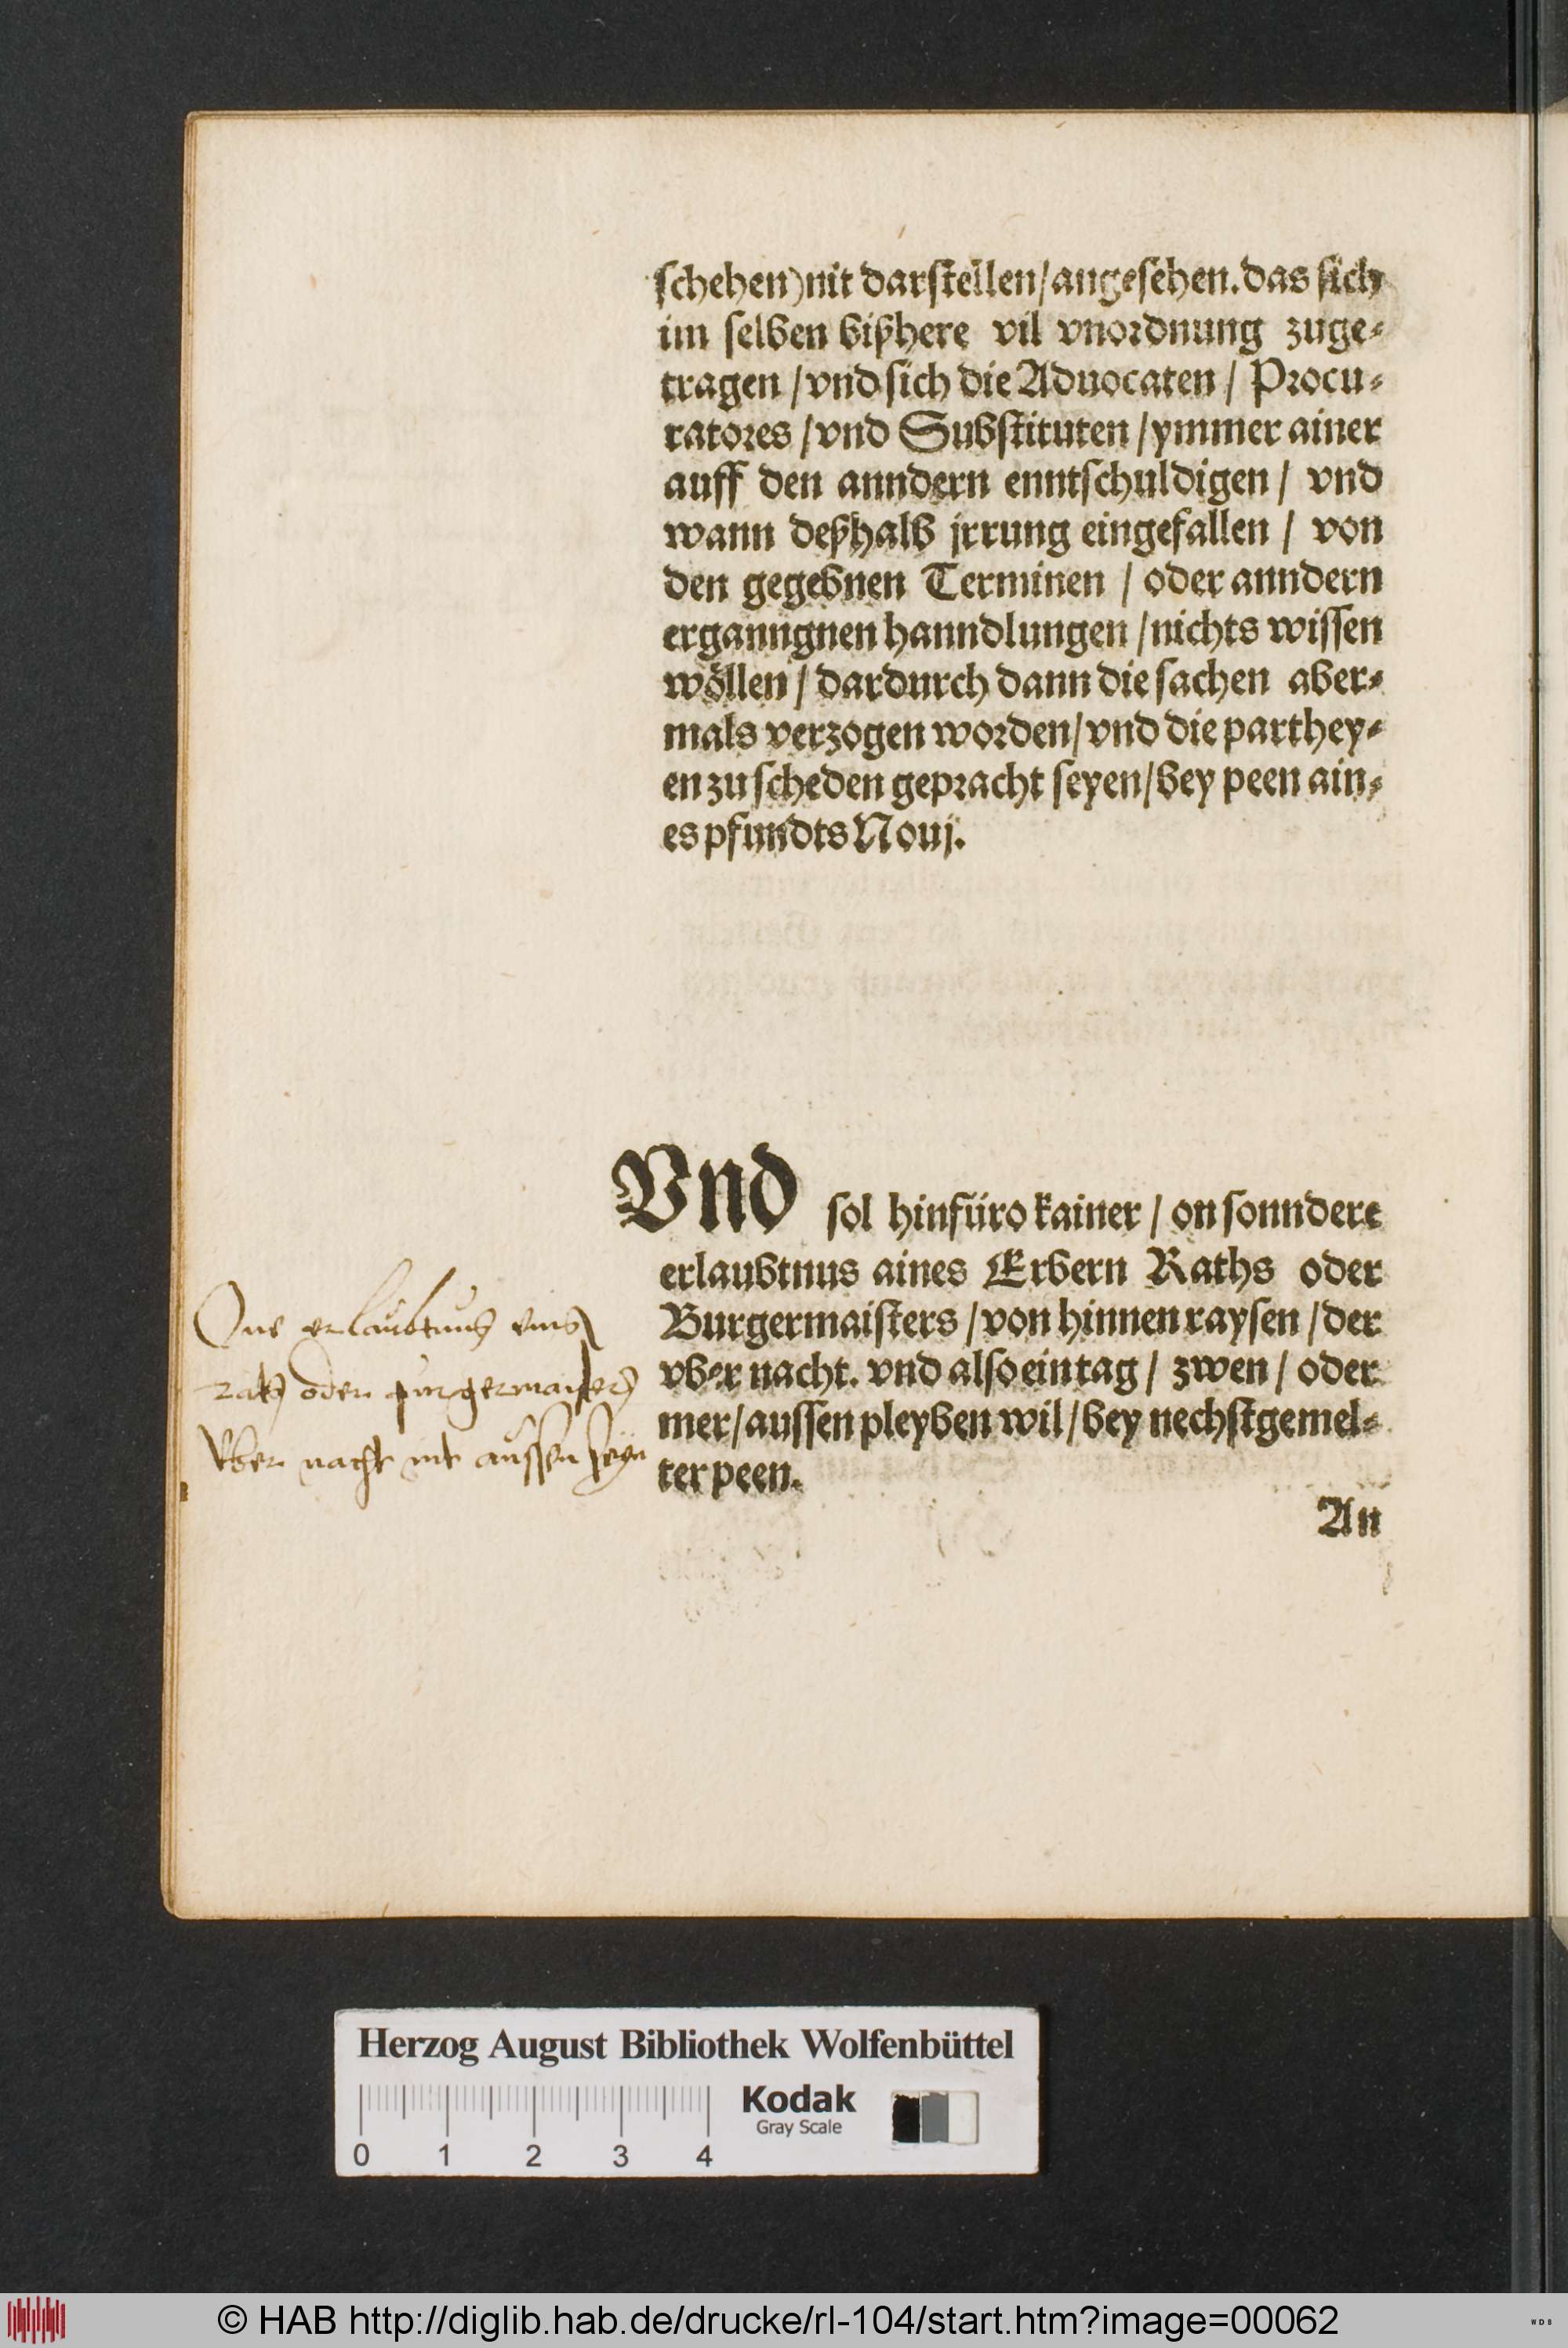 schehen) nit darstellen / angesehen. das sich
im selben bißhere vil vnordnung zuge-
tragen / vnd sich die Aduocaten / Procu-
ratores / vnd Substituten / ymmer ainer
auff den anndern enntschuldigen / vnd
wann deßhalb jrrung eingefallen / von
den gegebnen Terminen / oder anndern
erganngnen hanndlungen / nichts wissen
wöllen / dardurch dann die sachen aber-
mals verzogen worden / vnd die parthey-
en zu scheden gepracht seyen / bey peen ain-
es pfundts Nouj.
Vnd sol hinfüro kainer / on sonndere
erlaubtnus aines Erbern Raths oder
Burgermaisters / von hinnen raysen / der
vber nacht. vnd also ein tag / zwen / oder
mer / aussen pleyben wil / bey nechstgemel-
ter peen.
One erlaubtnuß eins
rats oder purgermaisters
vber nacht nit aussen sein
An
Herzog August Bibliothek Wolfenbüttel
Kodak
Gray Scale
0 1 2 3 4
© HAB http://diglib.hab.de/drucke/rl-104/start.htm?image=00062